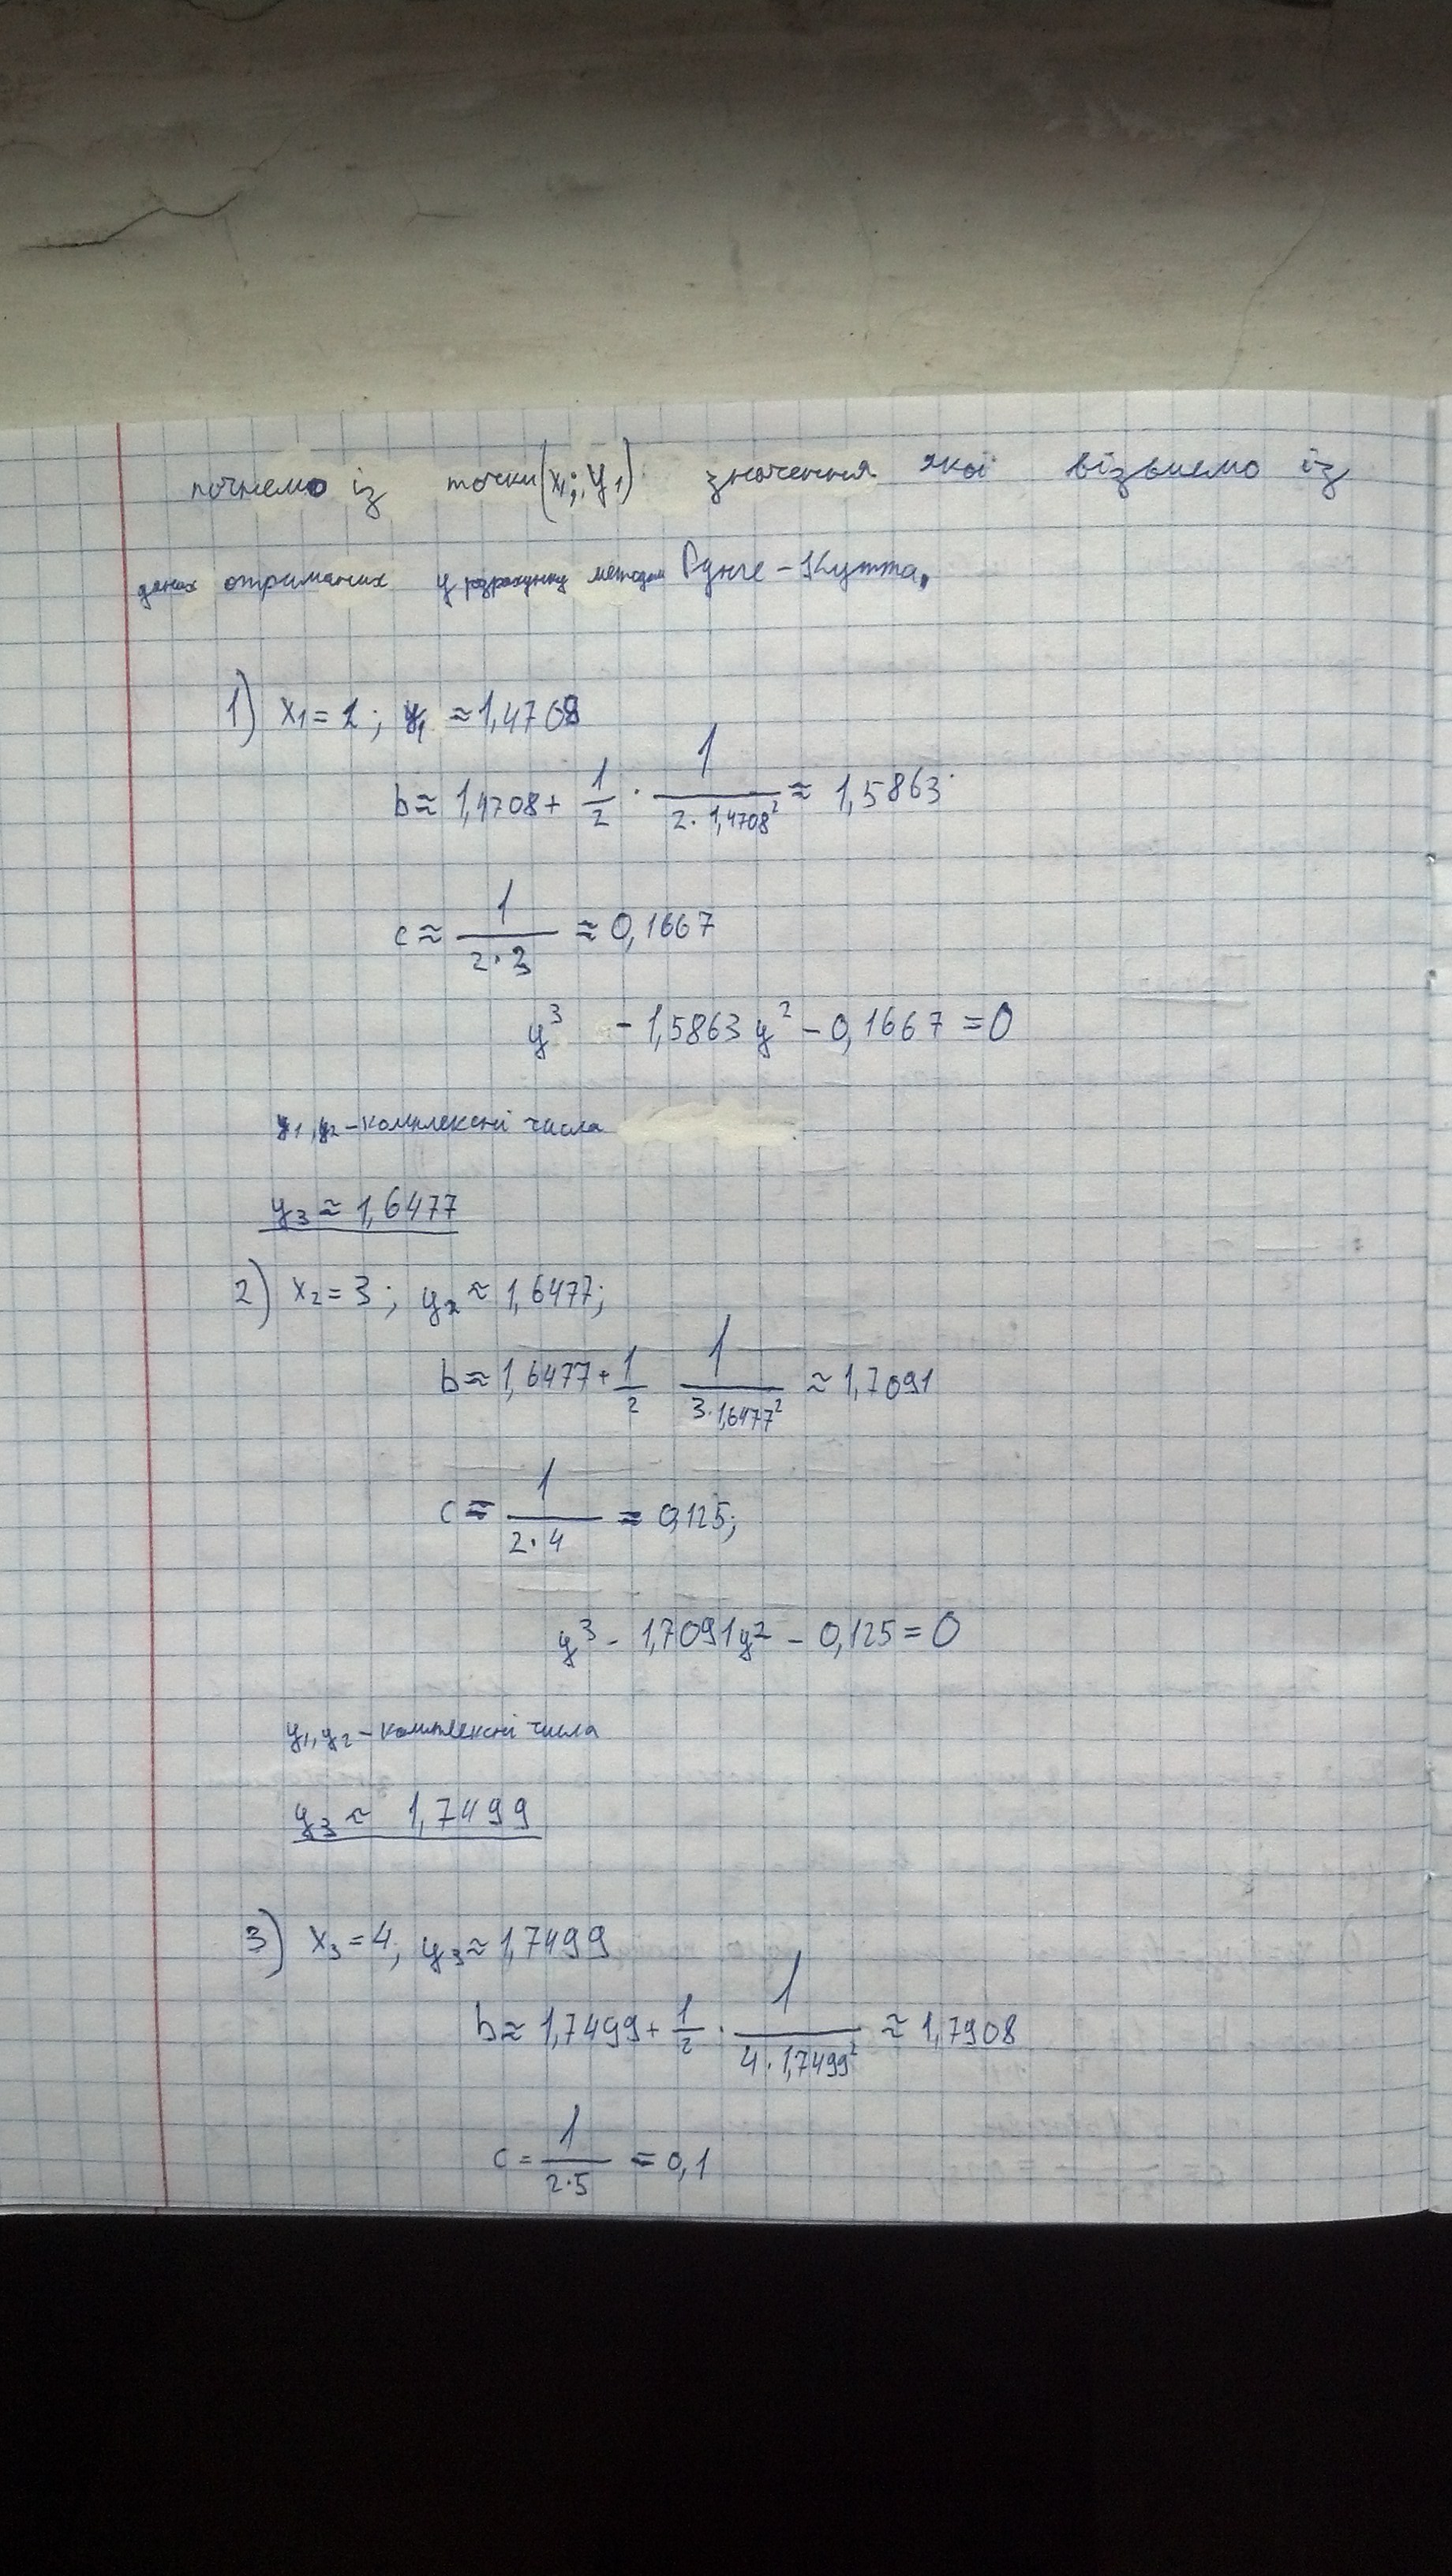 почнемо із точки (x₁; y₁) значення якої візьмемо із
даних отриманих у розрахунку методом Рунге - Кутта.
1) x₁ = 2; y₁ ≈ 1,4708
b ≈ 1,4708 + 1/2 · 1/(2 · 1,4708²) ≈ 1,5863
c ≈ 1/(2 · 3) ≈ 0,1667
y³ - 1,5863 y² - 0,1667 = 0
y₁, y₂ - комплексні числа
y₃ ≈ 1,6477
2) x₂ = 3; y₂ ≈ 1,6477;
b ≈ 1,6477 + 1/2 1/(3 · 1,6477²) ≈ 1,7091
c ≈ 1/(2 · 4) ≈ 0,125;
y³ - 1,7091y² - 0,125 = 0
y₁, y₂ - комплексні числа
y₃ ≈ 1,7499
3) x₃ = 4; y₃ ≈ 1,7499
b ≈ 1,7499 + 1/2 · 1/(4 · 1,7499²) ≈ 1,7908
c = 1/(2 · 5) = 0,1